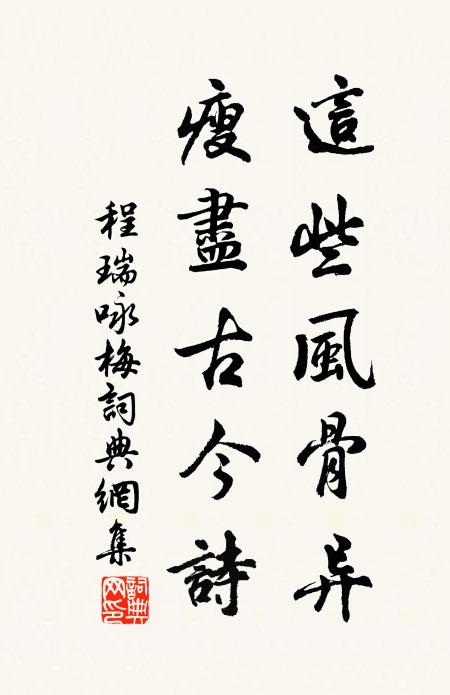 這些風骨异
瘦盡古今詩
程瑞咏梅詞典網集
詞典网印